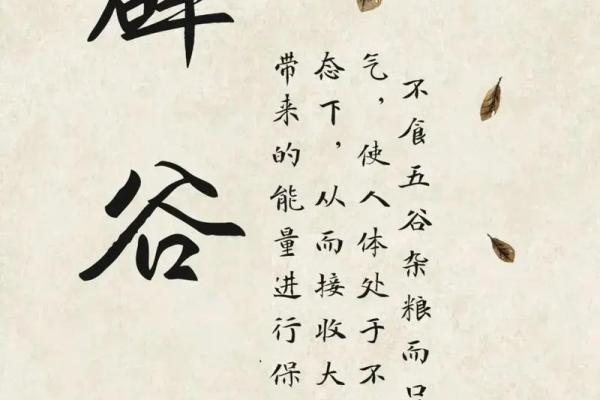 辟谷
不食五谷杂粮而只
气，使人体处于不
态下，从而接收大
带来的能量进行保